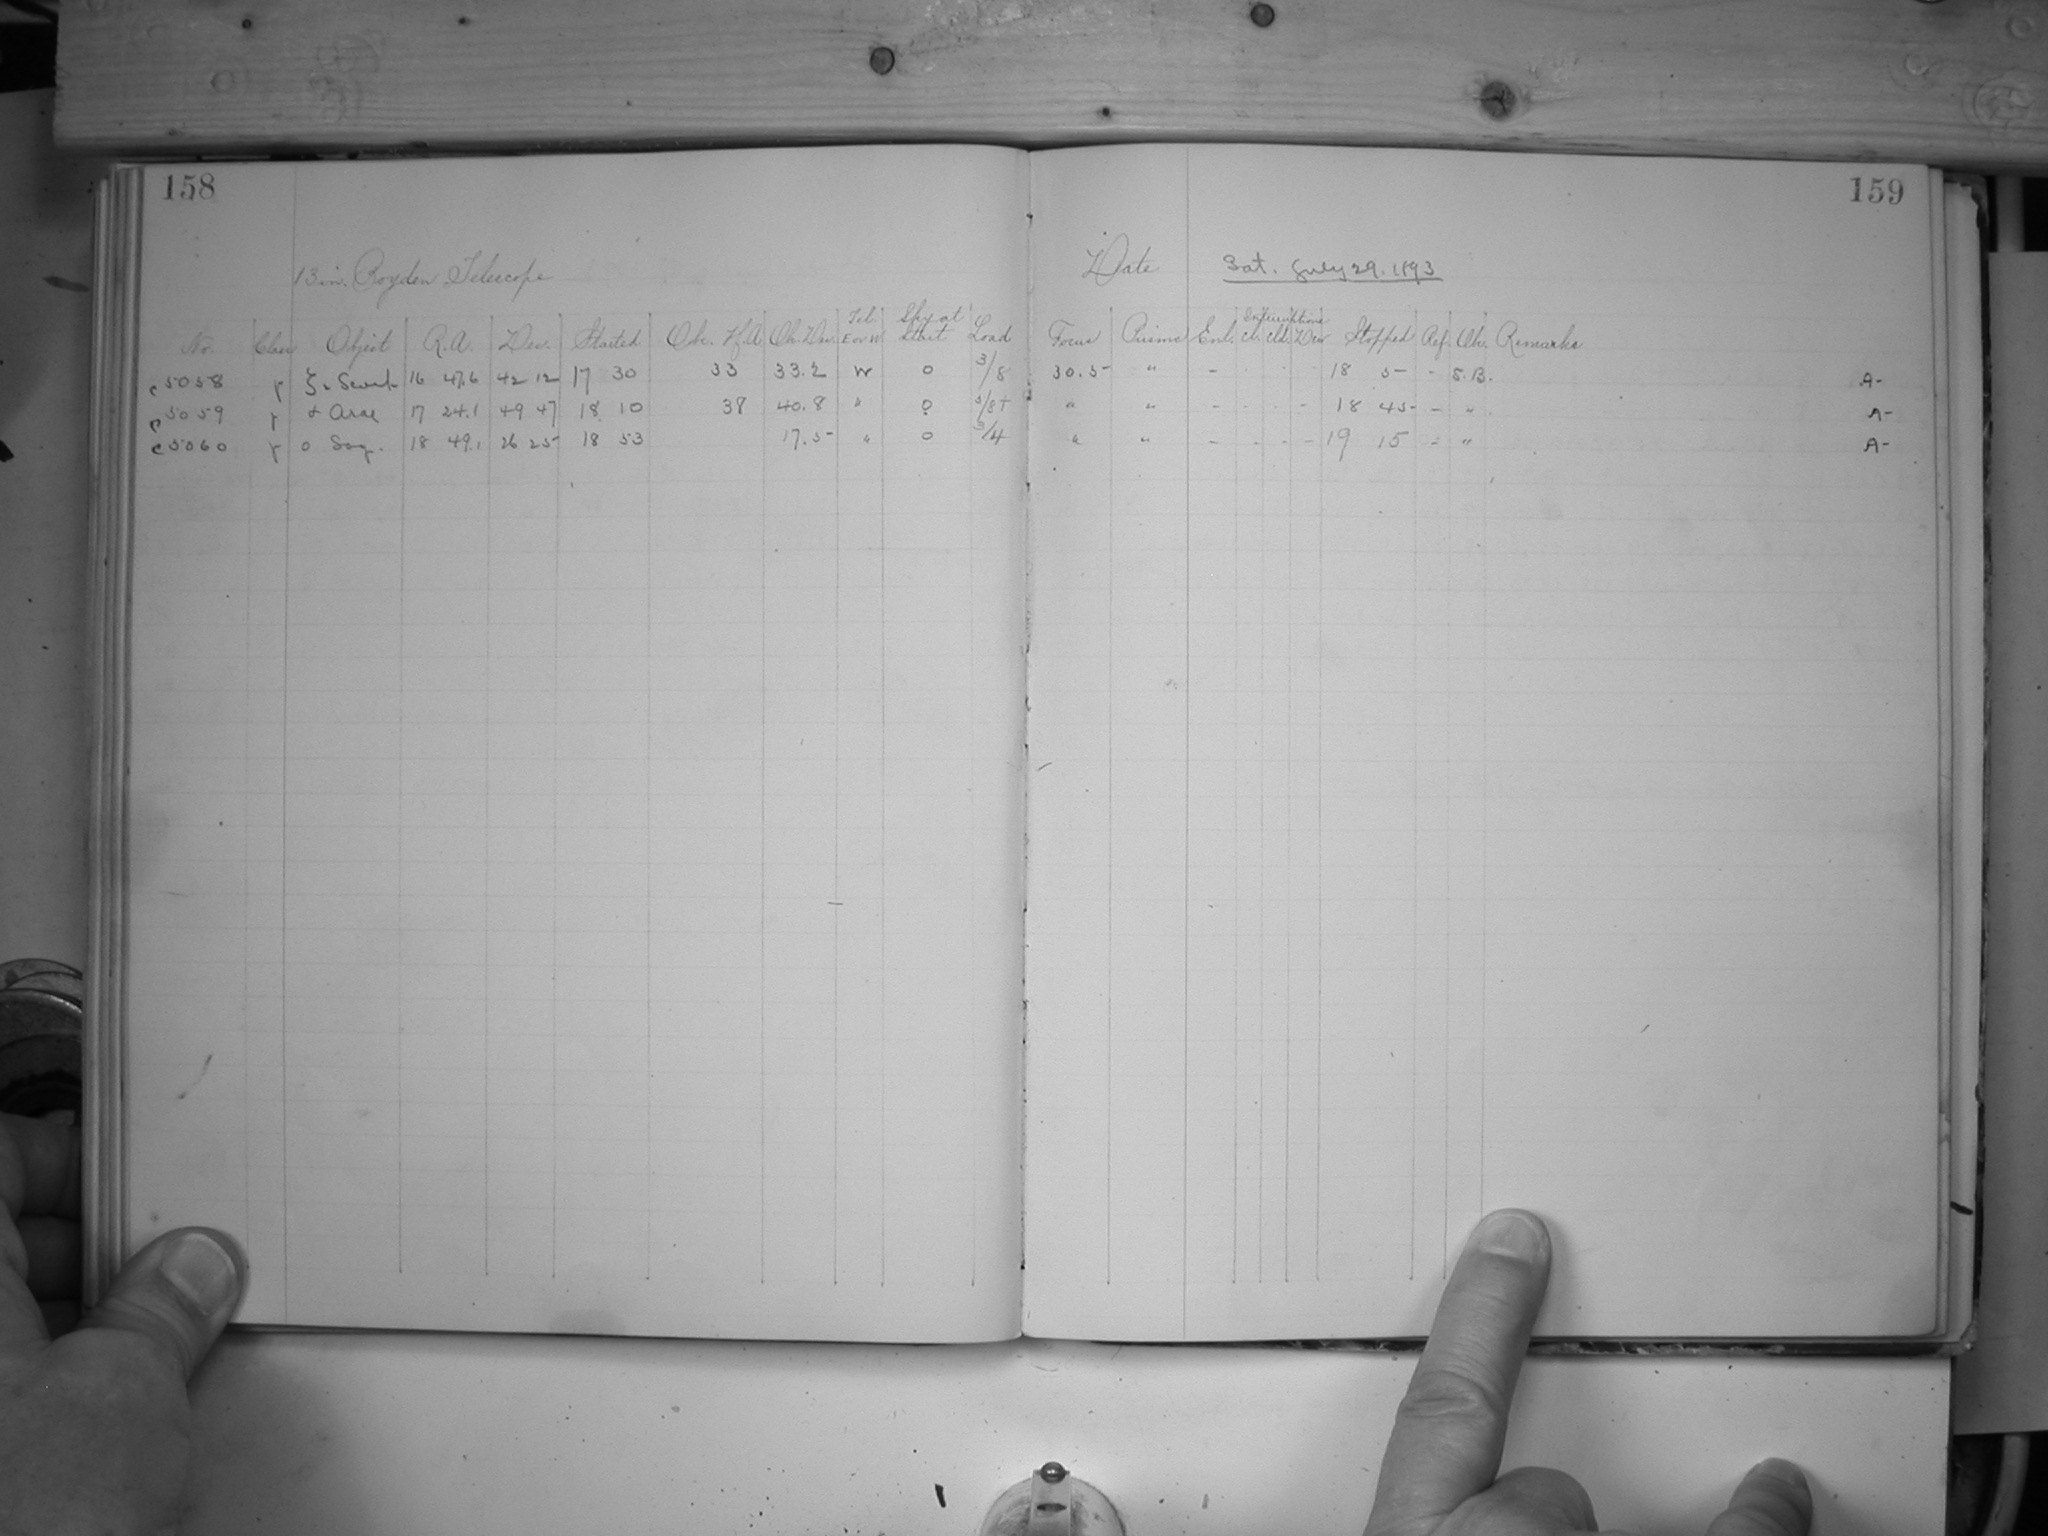 158
159
13 in. Boyden Telescope
Date Sat. July 29. 1893
No. Class Object R.A. Dec. Started Obs. H.A. Ob. Dec. Tel. E or W Sky at Start Load Focus Prisms Enl. Interruptions Cl. Cld. Dew Stopped Ref. Ob. Remarks
c 5058 ζ2 Scorp 16 47.6 42 12 17 30 33 33.2 W 0 3/8 30.5 " - 18 5 - S.B. A-
c 5059 α Arae 17 24.1 49 47 18 10 38 40.8 " 0 5/8+ " " - 18 45 - " A-
c 5060 o Sag. 18 49.1 26 25 18 53 17.5 " 0 3/4 " " - 19 15 - " A-